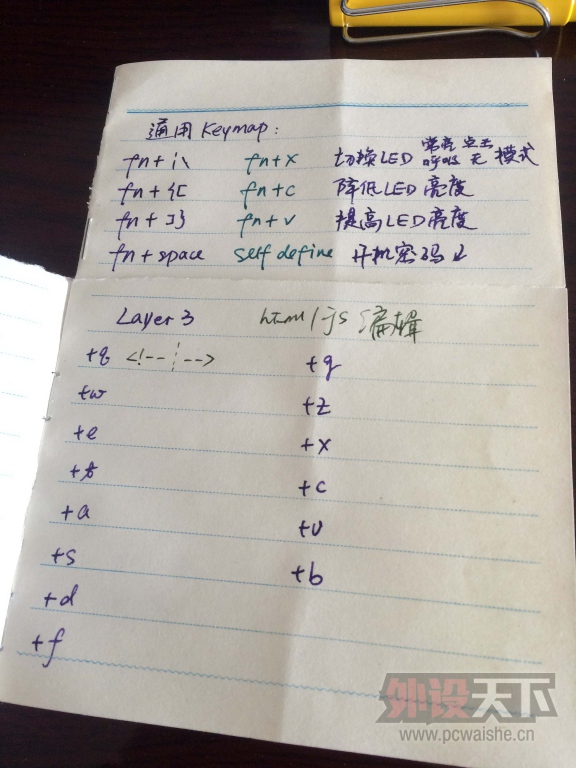 通用 Keymap:
fn + |\ fn + x 切换LED 常亮 点击 呼吸 无 模式
fn + {[ fn + c 降低LED亮度
fn + ]} fn + v 提高LED亮度
fn + space self define 开机密码↵
Layer 3 html / js 编辑
+q <!-- -->
+w
+e
+a
+s
+d
+f
+g
+z
+x
+c
+v
+b
外设天下
www.pcwaishe.cn